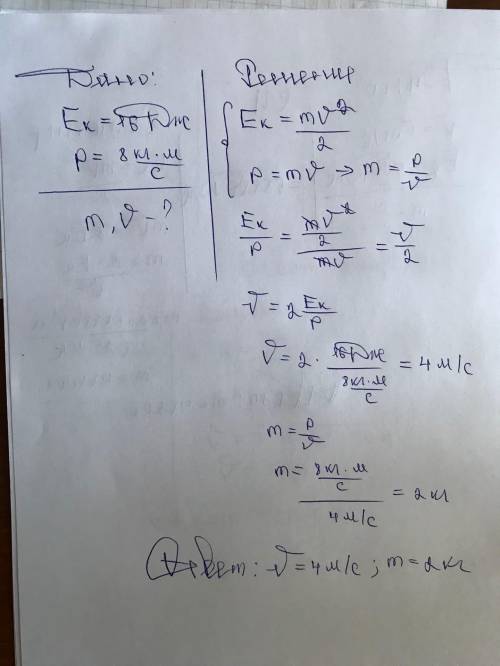 Дано:
Eк = 16 Дж
p = 8 кг·м/с
m, v - ?
Решение
Eк = mv²/2
p = mv ⇒ m = p/v
Eк/p = (mv²/2)/(mv) = v/2
v = 2 Eк/p
v = 2 · 16 Дж/(8 кг·м/с) = 4 м/с
m = p/v
m = (8 кг·м/с)/(4 м/с) = 2 кг
Ответ: v = 4 м/с; m = 2 кг